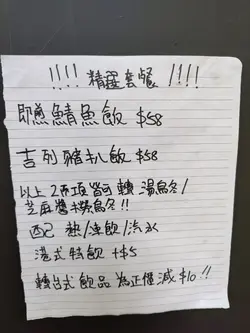 !!!! 精選套餐 !!!!
即煎鯖魚飯 $58
吉列豬扒飯 $58
以上2項皆可轉湯烏冬/
芝麻醬撈烏冬!!
配 熱/凍飲/汽水
港式特飲 +$5
轉台式飲品 為正價減$10!!